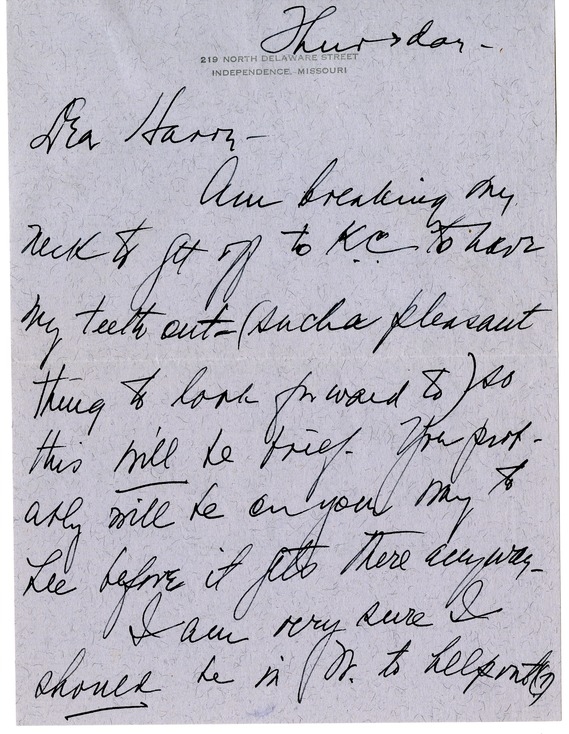 Thursday -
219 NORTH DELAWARE STREET
INDEPENDENCE, MISSOURI
Dear Harry -
Am breaking my
neck to get off to K.C. to have
my teeth out - (such a pleasant
thing to look forward to) so
this will be brief. You prob-
ably will be on your way to
Lee before it gets there anyway -
I am very sure I
should be in W. to help out (?)